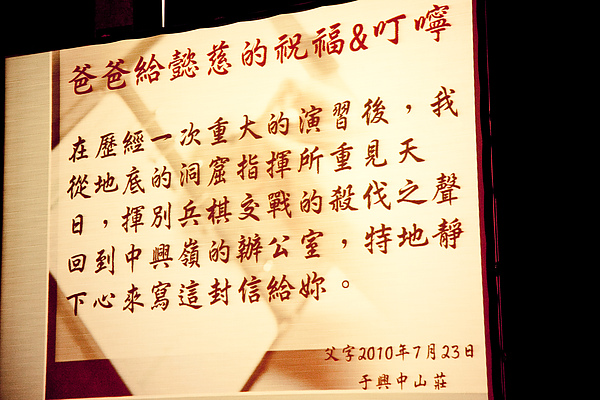 爸爸給懿慈的祝福&叮嚀
在歷經一次重大的演習後，我
從地底的洞窟指揮所重見天
日，揮別兵棋交戰的殺伐之聲
回到中興嶺的辦公室，特地靜
下心來寫這封信給妳。
父字2010年7月23日
于興中山莊